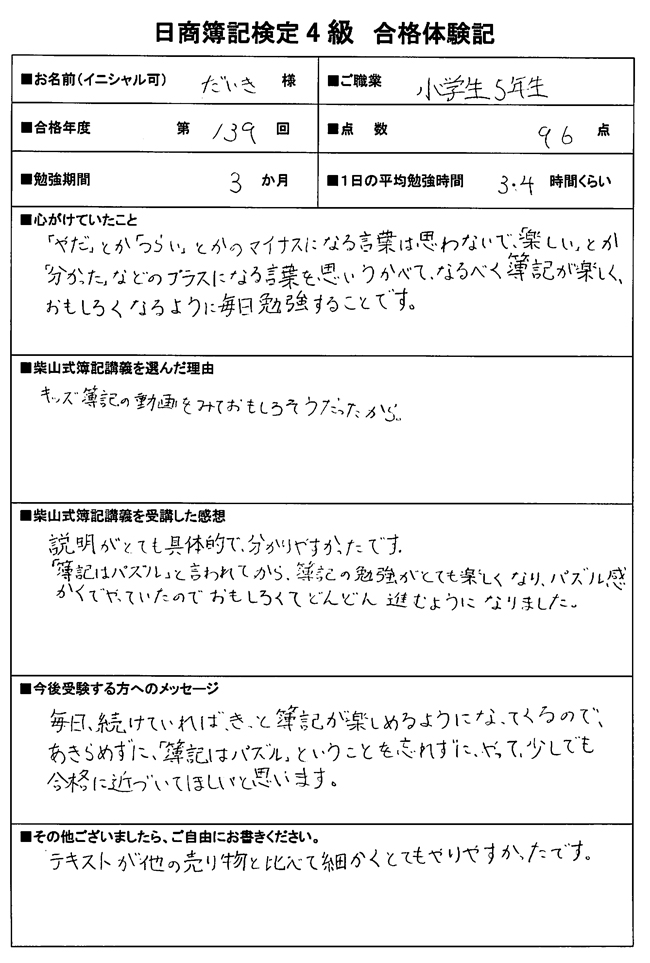 日商簿記検定4級 合格体験記
■お名前(イニシャル可) だいき 様 ■ご職業 小学生5年生
■合格年度 第 139 回 ■点 数 96 点
■勉強期間 3 か月 ■1日の平均勉強時間 3.4 時間くらい
■心がけていたこと
「やだ」とか「つらい」とかのマイナスになる言葉は思わないで、「楽しい」とか
「分かった」などのプラスになる言葉を思いうかべて、なるべく簿記が楽しく、
おもしろくなるように毎日勉強することです。
■柴山式簿記講義を選んだ理由
キッズ簿記の動画をみておもしろそうだったから。
■柴山式簿記講義を受講した感想
説明がとても具体的で、分かりやすかったです。
「簿記はパズル」と言われてから、簿記の勉強がとても楽しくなり、パズル感
かくでやっていたのでおもしろくてどんどん進むようになりました。
■今後受験する方へのメッセージ
毎日、続けていれば、きっと簿記が楽しめるようになってくるので、
あきらめずに、「簿記はパズル」ということを忘れずに、やって、少しでも
合格に近づいてほしいと思います。
■その他ございましたら、ご自由にお書きください。
テキストが他の売り物と比べて細かくとてもやりやすかったです。